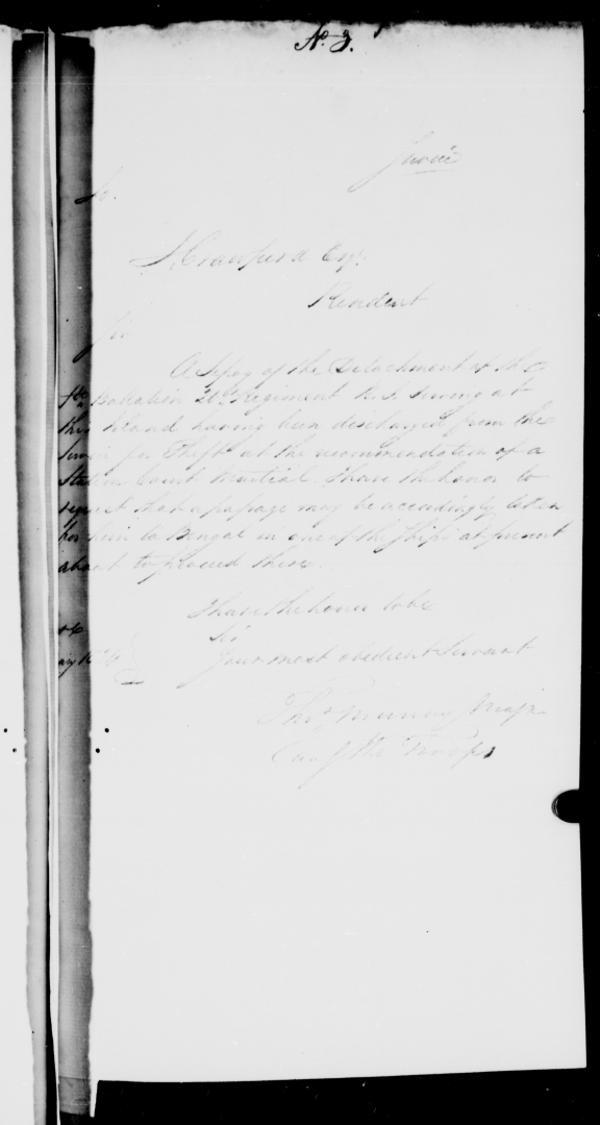 No. 3.
Service
To.
J. Crawfurd Esqr.
Resident
Sir
A Sepoy of the Detachment of the
Battalion 20th. Regiment N. I. serving at
this Island having been discharged from the
Service for Theft at the recommendation of a
Station Court Martial I have the honor to
request that a passage may be accordingly taken
for him to Bengal in one of the Ships at present
about to proceed there.
I have the honor to be
Sir
Your most obedient Servant
Thos. Murray Major
Comg the Troops